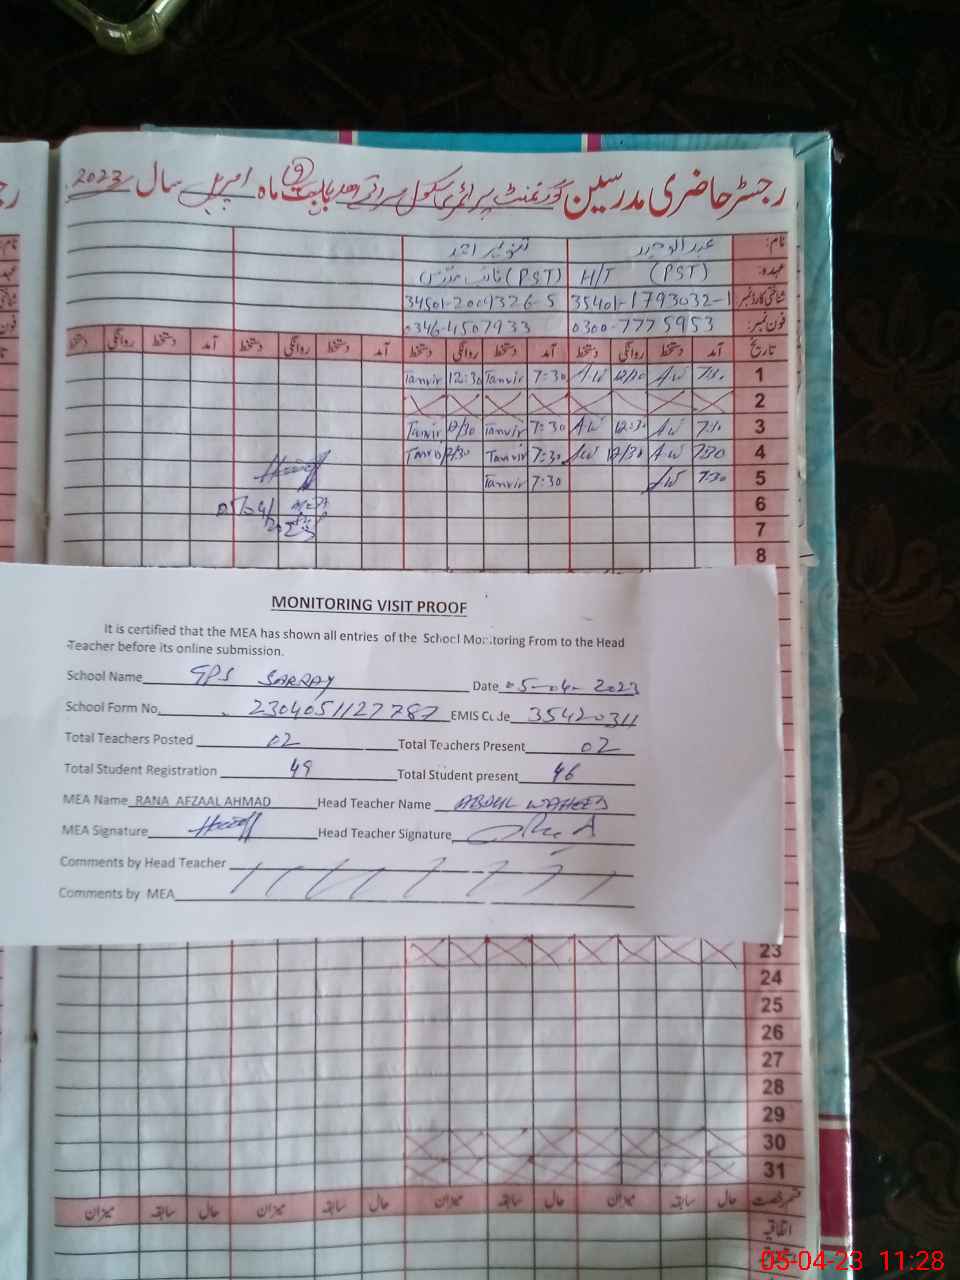 رجسٹر حاضری مدرسین گورنمنٹ پرائمری سکول بابت ماہ اپریل سال 2023
نام: عبدالوحید تنویر احمد
عہدہ: H/T (PST) نائب مدرس (PST)
شناختی کارڈ نمبر 35401-1793032-1 34501-2004326-5
فون نمبر: 0300-7775953 0346-4507933
تاریخ آمد دستخط روانگی دستخط آمد دستخط روانگی دستخط آمد دستخط روانگی دستخط آمد دستخط روانگی دستخط
1 AW AW 7:30 Tanvir 12:30 Tanvir
2
3 AW 12:30 AW 7:30 Tanvir 12/30 Tanvir
4 7:30 AW 12/30 AW 7:30 Tanvir 12/30 Tanvir
5 7:30 AW 7:30 Tanvir
6
7
8
05/04/2023
MONITORING VISIT PROOF
It is certified that the MEA has shown all entries of the School Monitoring From to the Head
Teacher before its online submission.
School Name GPS SARRAY Date 05-04-2023
School Form No. 2304051127787 EMIS Code 35420311
Total Teachers Posted 02 Total Teachers Present 02
Total Student Registration 49 Total Student present 46
MEA Name RANA AFZAAL AHMAD Head Teacher Name ABDUL WAHEED
MEA Signature Head Teacher Signature
Comments by Head Teacher
Comments by MEA
23
24
25
26
27
28
29
30
31
قسم رخصت حال سابقہ میزان حال سابقہ میزان حال سابقہ میزان حال سابقہ میزان
اتفاقیہ
05-04-23 11:28